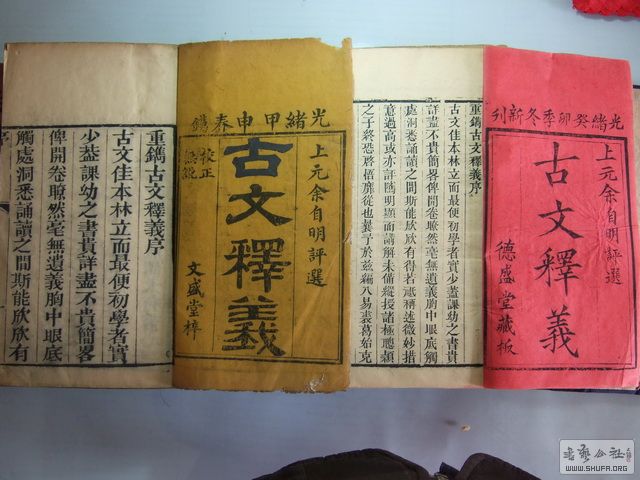 光緒癸卯季冬新刊
上元余自明評選
古文釋義
德盛堂藏板
重鐫古文釋義序
古文佳本林立而最便初學者實少蓋課幼之書貴
詳盡不貴簡畧俾開卷暸然毫無遺義胸中眼底觸
處洞悉誦讀之間斯能欣欣有得若稱述微妙措
意過高或亦明顯而講解未備縱授諸極聰穎
之子終恐啓悟靡從也曩予於茲編八易裘葛始克
光緒甲申春鐫
上元余自明評選
古文釋義
校正
無訛
文盛堂梓
重鐫古文釋義序
古文佳本林立而最便初學者實
少蓋課幼之書貴詳盡不貴簡畧
俾開卷暸然毫無遺義胸中眼底
觸處洞悉誦讀之間斯能欣欣有
序
WWW.SHUFA.ORG